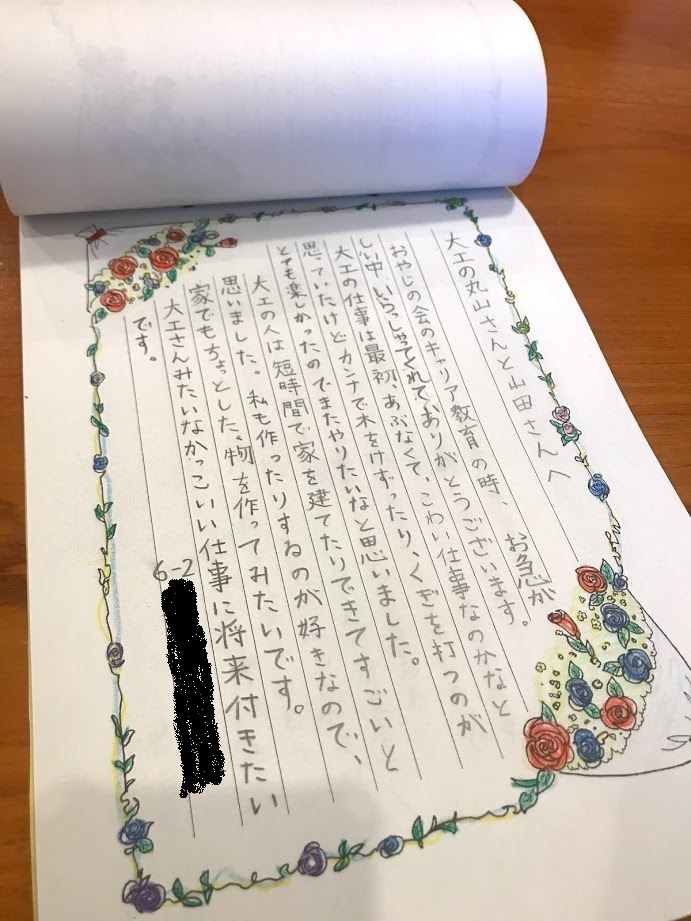 大工の丸山さんと山田さんへ
おやじの会のキャリア教育の時、お急が
しい中、いらっしゃてくれてありがとうございます。
大工の仕事は最初、あぶなくて、こわい仕事なのかなと
思っていたけどカンナで木をけずったり、くぎを打つのが
とても楽しかったのでまたやりたいなと思いました。
大工の人は短時間で家を建てたりできてすごいと
思いました。私も作ったりするのが好きなので、
家でもちょっとした、物を作ってみたいです。
大工さんみたいなかっこいい仕事に将来付きたい
です。
6-2